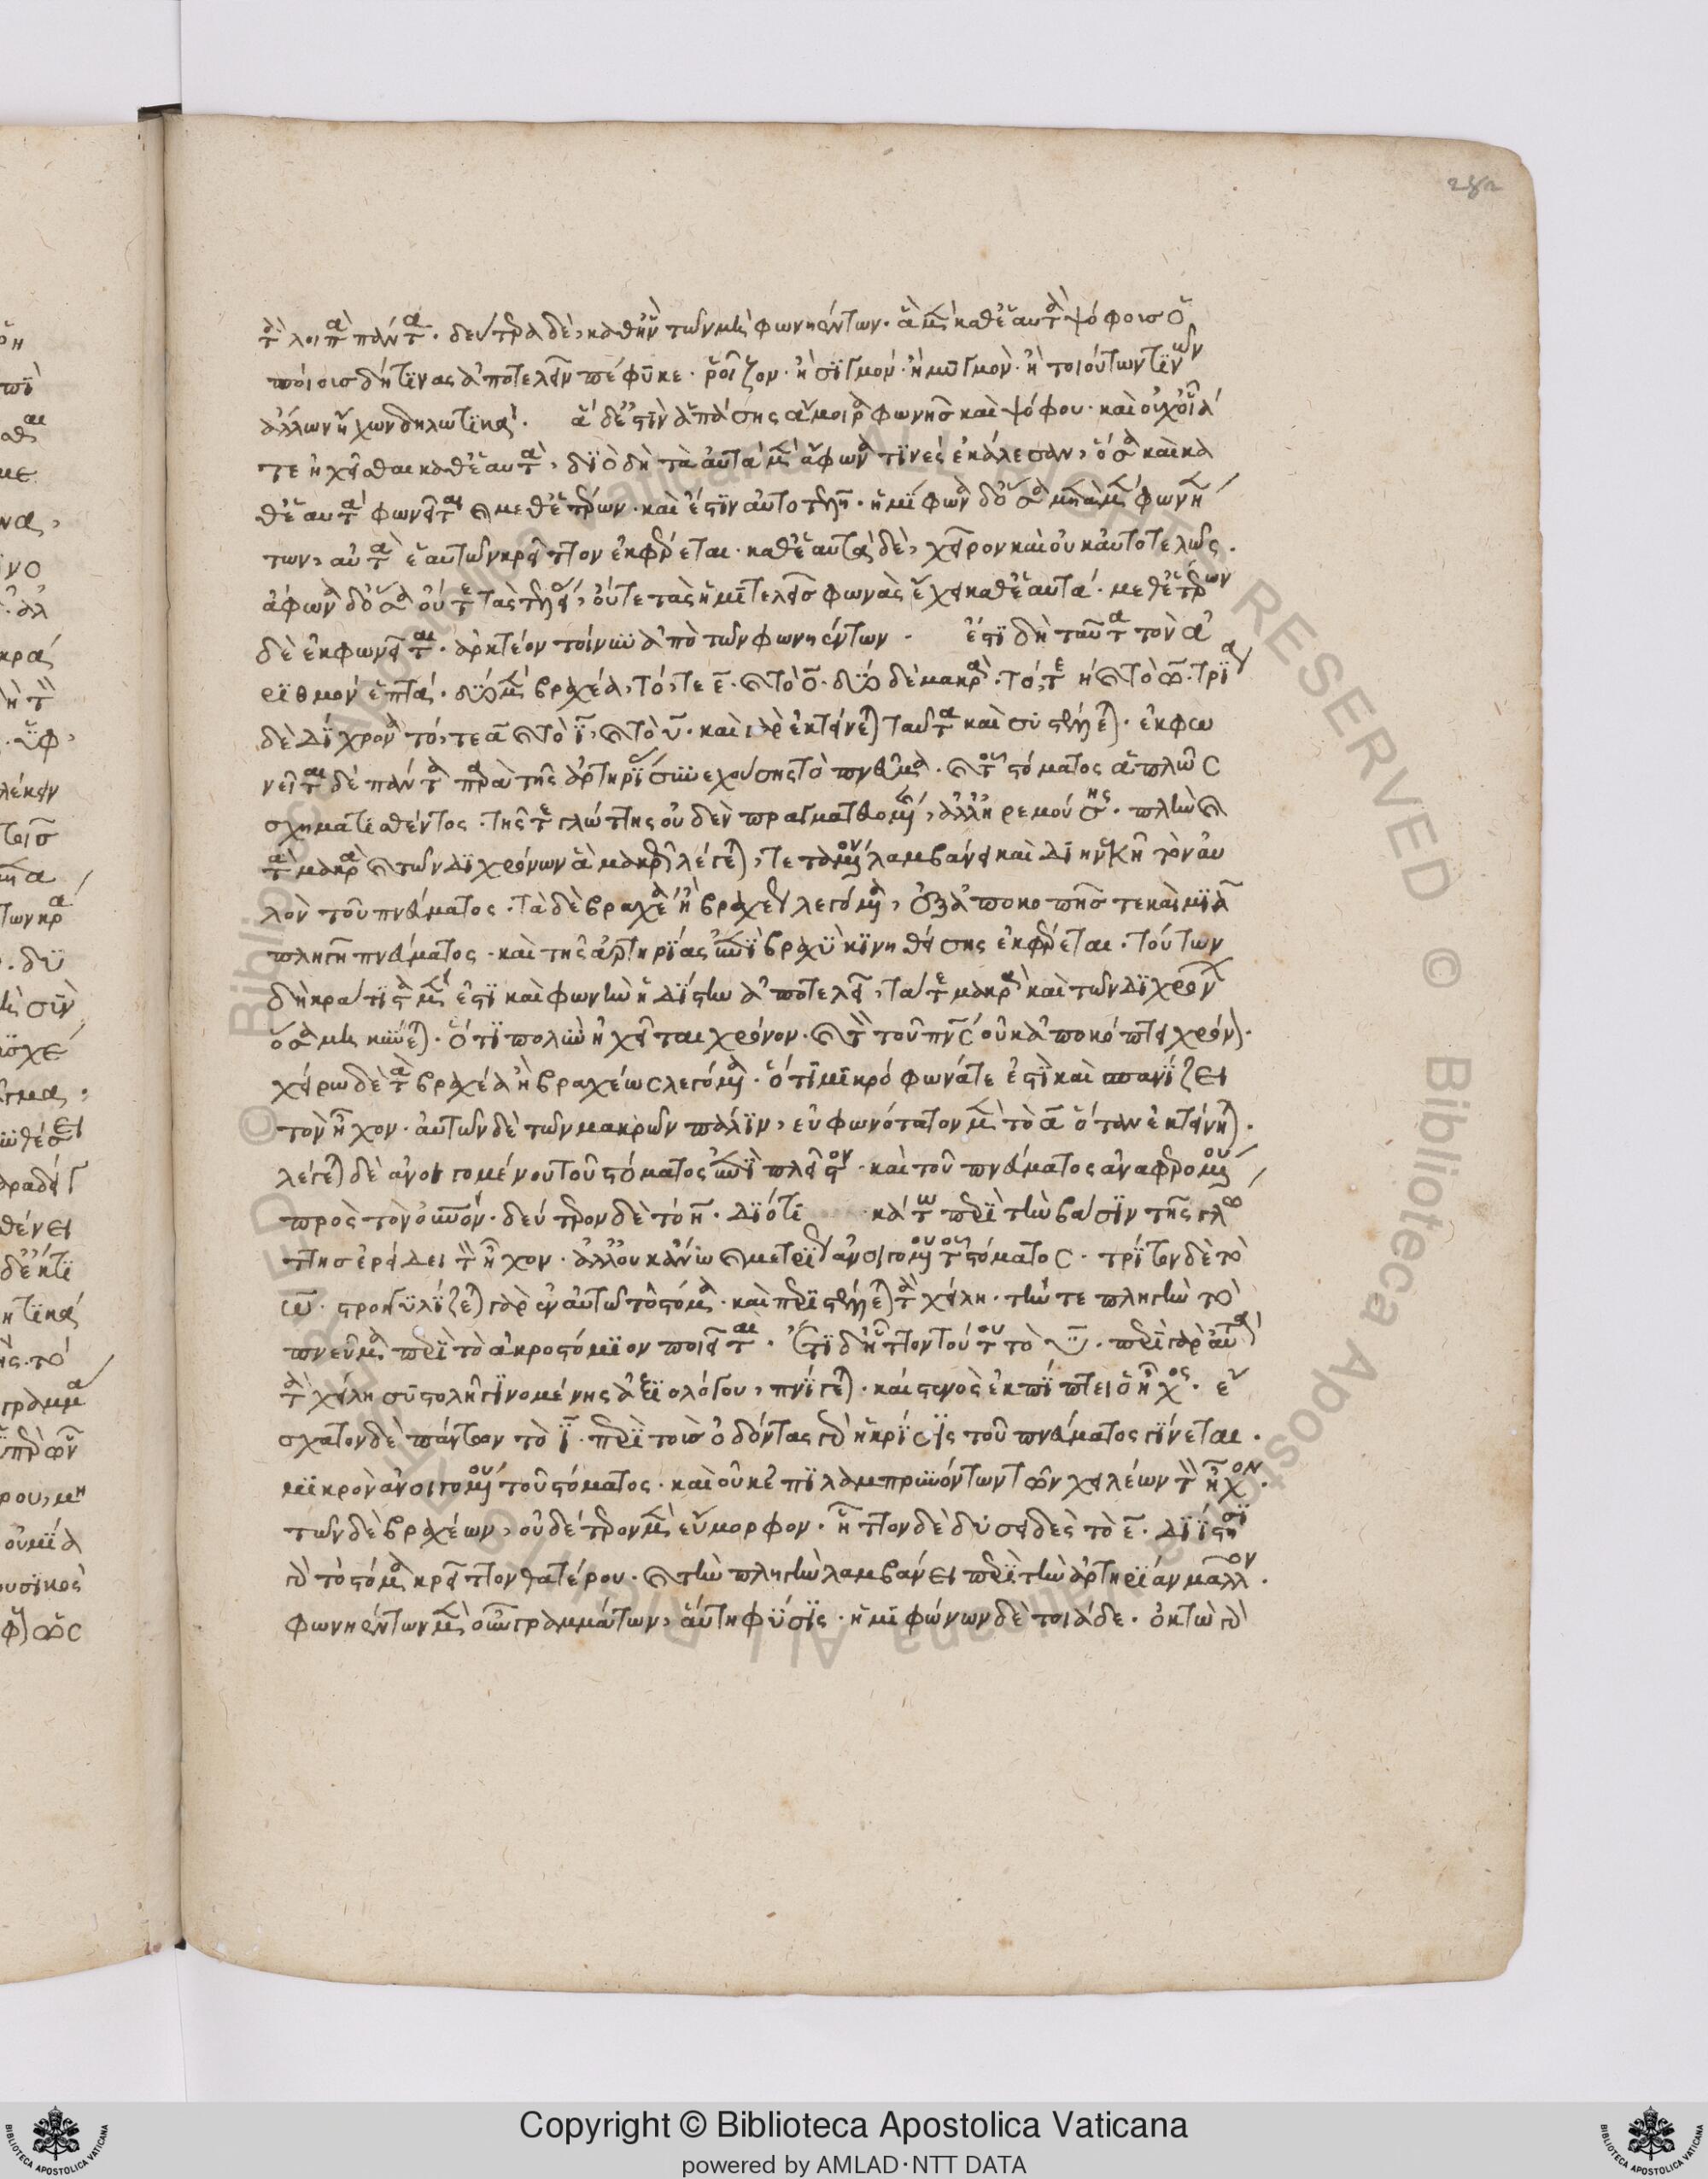 282
τὰ λοιπὰ πάντα. δευτέρα δὲ, καθ ἣν τῶν μὲν φωνηέντων. ἃ μὲν καθ ἑαυτὰ ψόφους ὁ
ποίους δήτινας ἀποτελεῖν πέφυκε. ῥοῖζον. ἢ σιγμόν. ἢ μυγμὸν. ἢ τοιούτων τινῶν
ἄλλων ἤχων δηλωτικά. ἃ δ ἐστὶν ἁπάσης ἄμοιρα φωνῆς καὶ ψόφου. καὶ οὐχ οἷά
τε ἠχεῖσθαι καθ ἑαυτὰ, διὸ δὴ ταῦτα μὲν ἄφωνα τινὲς ἐκάλεσαν, ὅσα καὶ κα
θ ἑαυτὰ φωνεῖται καὶ μεθ ἑτέρων. καὶ ἔστιν αὐτοτελῆ. ἡμίφωνα δ ὅσα μετὰ μὲν φωνηέν
των, αὐτὰ ἑαυτῶν κρεῖττον ἐκφέρεται. καθ ἑαυτὰ δὲ, χεῖρον καὶ οὐκ αὐτοτελῶς.
ἄφωνα δ ὅσα οὔτε τὰς τελείας, οὔτε τὰς ἡμιτελεῖς φωνὰς ἔχει καθ ἑαυτά. μεθ ἑτέρων
δὲ ἐκφωνεῖται. ἀρκτέον τοίνυν ἀπὸ τῶν φωνηέντων. ἔστι δὴ ταῦτα τὸν ἀ
ριθμὸν ἑπτά. δύο μὲν βραχέα, τό, τε ε. καὶ τὸ ο. δύο δὲ μακρὰ. τό, τε η καὶ τὸ ω. τρία
δὲ δίχρονα τό, τε α καὶ τὸ ι, καὶ τὸ υ. καὶ γὰρ ἐκτείνεται ταῦτα καὶ συστέλλεται. ἐκφω
νεῖται δὲ πάντα παρὰ τῆς ἀρτηρίας συνεχούσης τὸ πνεῦμα. καὶ τοῦ στόματος ἁπλῶς
σχηματισθέντος. τῆς τε γλώττης οὐδὲν πραγματευομένης, ἀλλ ἠρεμούσης. πλὴν καὶ
τὰ μακρὰ καὶ τῶν διχρόνων ἃ μακρῶς λέγεται, τεταμένον λαμβάνει καὶ διηνεκῆ τὸν αὐ
λὸν τοῦ πνεύματος. τὰ δὲ βραχέα ἢ βραχέως λεγόμενα, ἐξ ἀποκοπῆς τε καὶ μιᾶ
πληγῇ πνεύματος. καὶ τῆς ἀρτηρίας ἐπὶ βραχὺ κινηθείσης ἐκφέρεται. τούτων
δὴ κράτιστα μὲν ἐστὶ καὶ φωνὴν ἡδίστην ἀποτελεῖ, τά τε μακρὰ καὶ τῶν διχρόνων
ὅσα μηκύνεται. ὅτι πολὺν ἠχεῖται χρόνον. καὶ τὸν τοῦ πνεύματος οὐκ ἀποκόπτει χρόνον.
χείρω δὲ τὰ βραχέα ἢ βραχέως λεγόμενα. ὅτι μικρόφωνά τε ἐστὶ καὶ σπανίζει
τὸν ἦχον. αὐτῶν δὲ τῶν μακρῶν πάλιν, εὐφωνότατον μὲν τὸ α ὅταν ἐκτείνηται.
λέγεται δὲ ἀνοιγομένου τοῦ στόματος ἐπὶ πλεῖστον. καὶ τοῦ πνεύματος ἀναφερομένου
πρὸς τὸν οὐρανόν. δεύτερον δὲ τὸ η. διότι κάτω περὶ τὴν βάσιν τῆς γλώ
ττης ἐρείδει τὸν ἦχον. ἀλλ οὐκ ἄνω καὶ μετρίως ἀνοιγομένου τοῦ στόματος. τρίτον δὲ τὸ
ω. στρογγυλίζεται γὰρ ἐν αὐτῶ τὸ στόμα. καὶ περιστέλλεται τὰ χείλη. τήν τε πληγὴν τὸ
πνεῦμα περὶ τὸ ἀκροστόμιον ποιεῖται. ἔτι δ ἧττον τούτου τὸ υ. περὶ γὰρ αὐτὰ
τὰ χείλη συστολῆς γινομένης ἀξιολόγου, πνίγεται. καὶ στενὸς ἐκπίπτει ὁ ἦχος. ἔ
σχατον δὲ πάντων τὸ ι. περὶ τοὺς ὀδόντας γὰρ ἡ κρίσις τοῦ πνεύματος γίνεται.
μικρὸν ἀνοιγομένου τοῦ στόματος. καὶ οὐκ ἐπιλαμπρυνόντων τῶν χειλέων τὸν ἦχον.
τῶν δὲ βραχέων, οὐδέτερον μὲν εὔμορφον. ἧττον δὲ δυσειδὲς τὸ ε. διίστησι
γὰρ τὸ στόμα κρεῖττον θατέρου. καὶ τὴν πληγὴν λαμβάνει περὶ τὴν ἀρτηρίαν μᾶλλον.
φωνηέντων μὲν οὖν γραμμάτων, αὕτη φύσις. ἡμιφώνων δὲ τοιάδε. ὀκτὼ γὰρ
Copyright © Biblioteca Apostolica Vaticana
powered by AMLAD·NTT DATA